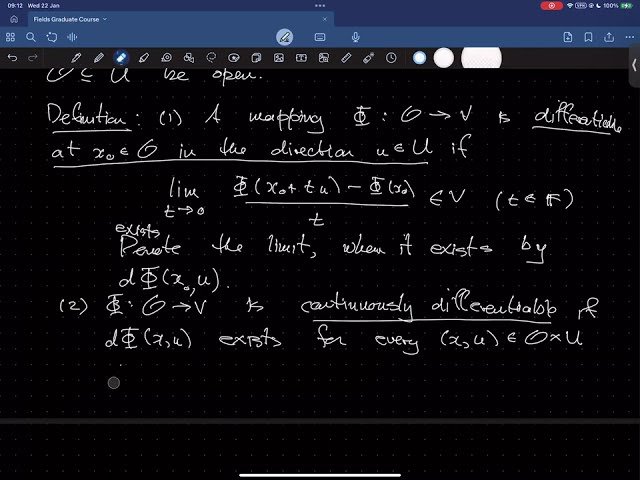 09:12 Wed 22 Jan
100%
Fields Graduate Course
O ⊆ U be open.
Definition: (1) A mapping Φ : O → V is differentiable
at x₀ ∈ O in the direction u ∈ U if
lim t→0 (Φ(x₀ + t u) − Φ(x₀)) / t ∈ V (t ∈ 𝔽)
exists
Denote the limit, when it exists by
dΦ(x₀, u).
(2) Φ : O → V is continuously differentiable if
dΦ(x, u) exists for every (x, u) ∈ O × U